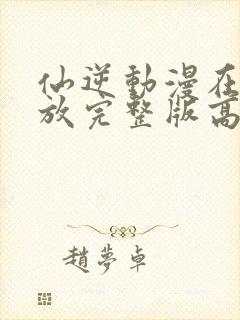 仙逆動漫在
放完整版高
趙夢卓